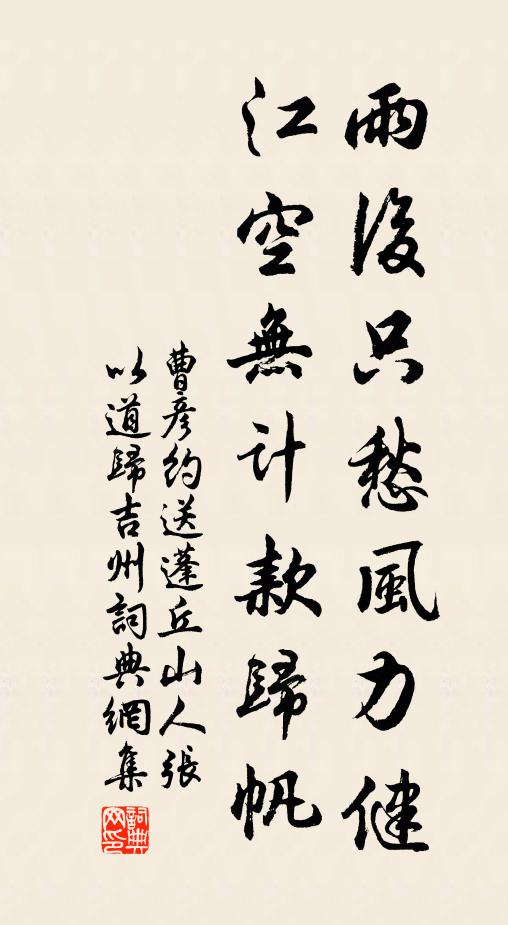 雨後只愁風力健
江空無計款歸帆
曹彥約送蓬丘山人張
以道歸吉州詞典網集
詞典
网印